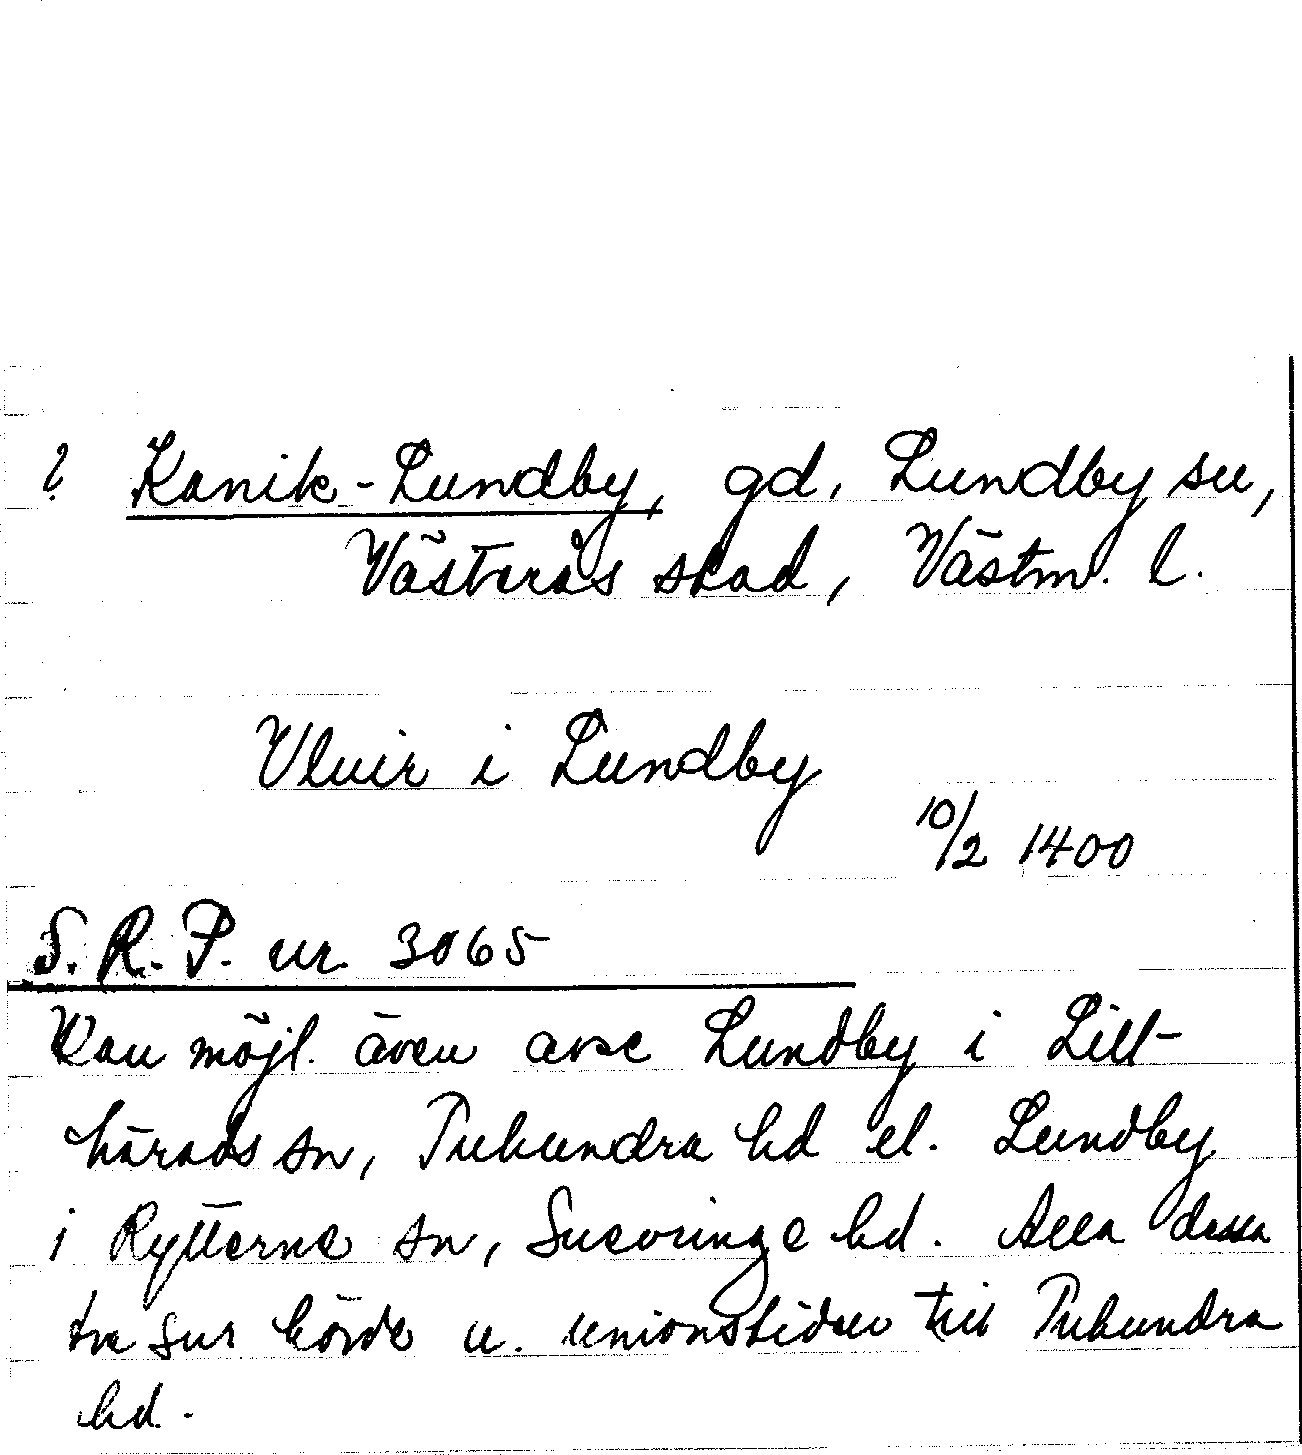 ? Kanik-Lundby, gd, Lundby sn,
Västerås skad, Västm. l.
Ulvir i Lundby
10/2 1400
S. R. P. nr. 3065
Kan möjl. även avse Lundby i Lill-
härads sn, Tuhundra hd el. Lundby
i Rytterne sn, Snevringe hd. Alla dessa
tre snr hörde u. unionstiden till Tuhundra
hd.